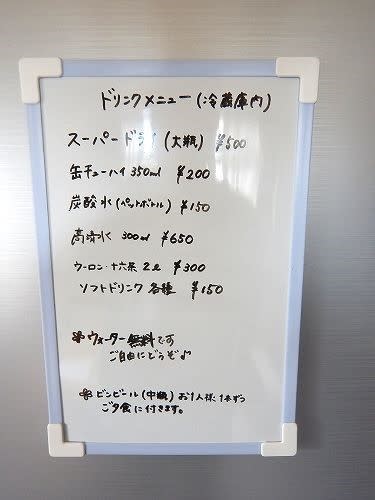 ドリンクメニュー(冷蔵庫内)
スーパードライ(大瓶) ¥500
缶チューハイ 350ml ¥200
炭酸水(ペットボトル) ¥150
高清水 300ml ¥650
ウーロン・十六茶 2ℓ ¥300
ソフトドリンク 各種 ¥150
✽ウォーター無料です
ご自由にどうぞ♪
✽ビンビール(中瓶)お1人様1本ずつ
ご夕食に付きます。